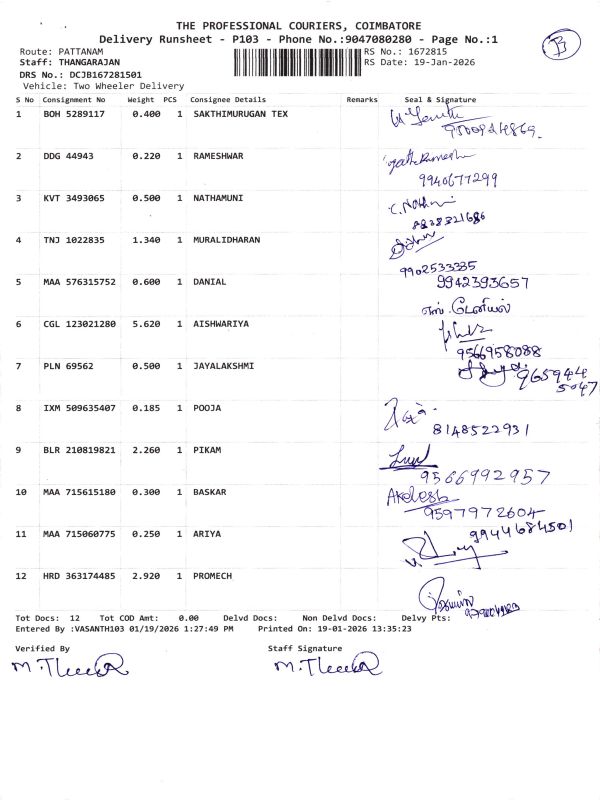 THE PROFESSIONAL COURIERS, COIMBATORE
Delivery Runsheet - P103 - Phone No.:9047080280 - Page No.:1
B
Route: PATTANAM
RS No.: 1672815
Staff: THANGARAJAN
RS Date: 19-Jan-2026
DRS No.: DCJB167281501
Vehicle: Two Wheeler Delivery
S No Consignment No Weight PCS Consignee Details Remarks Seal & Signature
1 BOH 5289117 0.400 1 SAKTHIMURUGAN TEX
2 DDG 44943 0.220 1 RAMESHWAR
9940677299
3 KVT 3493065 0.500 1 NATHAMUNI
8838321686
4 TNJ 1022835 1.340 1 MURALIDHARAN
9902533335
5 MAA 576315752 0.600 1 DANIAL 9942393657
எஸ். டேனியல்
6 CGL 123021280 5.620 1 AISHWARIYA
9566958088
7 PLN 69562 0.500 1 JAYALAKSHMI
965944
5047
8 IXM 509635407 0.185 1 POOJA
8148522931
9 BLR 210819821 2.260 1 PIKAM
9566992957
10 MAA 715615180 0.300 1 BASKAR Akelesh
9597972604
11 MAA 715060775 0.250 1 ARIYA 9944684501
12 HRD 363174485 2.920 1 PROMECH
Tot Docs: 12 Tot COD Amt: 0.00 Delvd Docs: Non Delvd Docs: Delvy Pts:
Entered By :VASANTH103 01/19/2026 1:27:49 PM Printed On: 19-01-2026 13:35:23
Verified By Staff Signature